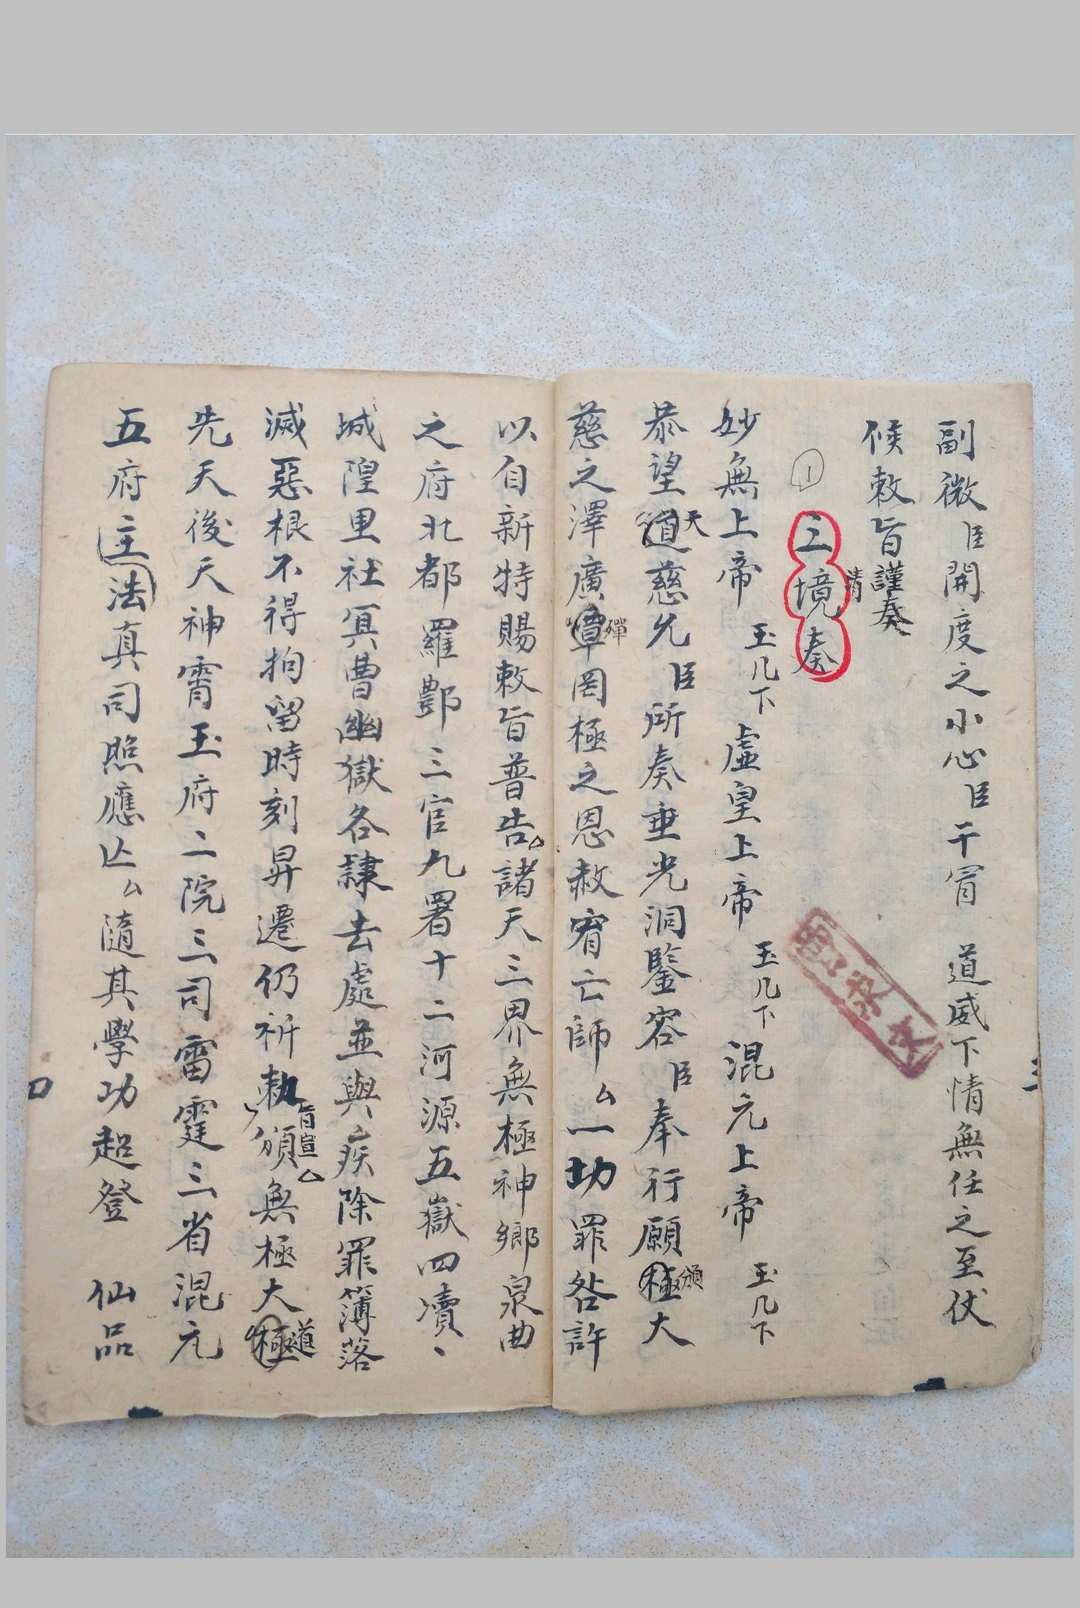 副微臣開度之小心臣干冒　道威下情無任之至伏
候敕旨謹奏
①三境奏
清
妙無上帝　玉几下　虛皇上帝　玉几下　混元上帝　玉几下
恭望道慈允臣所奏垂光洞鑒容臣奉行願極大
天
頒
慈之澤廣覃罔極之恩赦宥亡師厶一切罪咎許
殫
以自新特賜敕旨普告厶諸天三界無極神鄉泉曲
之府北都羅酆三官九署十二河源五嶽四瀆、
城隍里社冥曹幽獄各隸去處並與疾除罪簿落
滅惡根不得拘留時刻昇遷仍祈勅頒無極大極
旨宣厶
道
先天後天神霄玉府二院三司雷霆三省混元
五府主法真司照應亡厶隨其學功超登　仙品